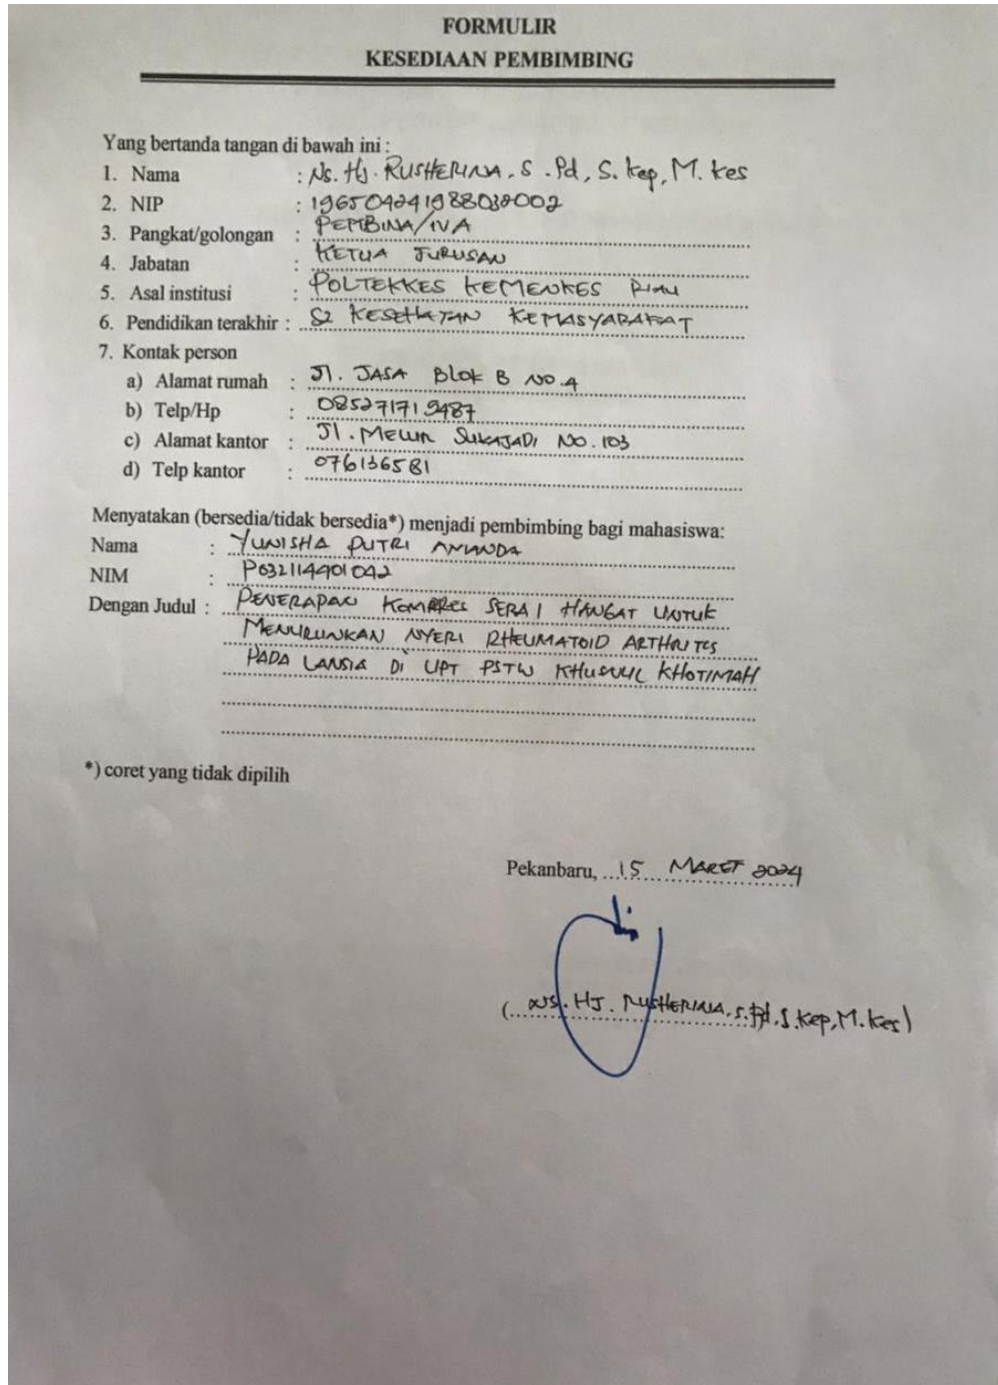 FORMULIR
KESEDIAAN PEMBIMBING
Yang bertanda tangan di bawah ini :
1. Nama : Ns. Hj. RUSHERINA, S.Pd, S.Kep, M.Kes
2. NIP : 196504241988032002
3. Pangkat/golongan : PEMBINA/IVA
4. Jabatan : KETUA JURUSAN
5. Asal institusi : POLTEKKES KEMENKES RIAU
6. Pendidikan terakhir : S2 KESEHATAN KEMASYARAKAT
7. Kontak person
a) Alamat rumah : Jl. JASA Blok B NO.4
b) Telp/Hp : 085271719487
c) Alamat kantor : Jl. MELUR SUKAJADI NO. 103
d) Telp kantor : 076136581
Menyatakan (bersedia/tidak bersedia*) menjadi pembimbing bagi mahasiswa:
Nama : YUNISHA PUTRI ANANDA
NIM : P032114401042
Dengan Judul : PENERAPAN KOMPRES SERAI HANGAT UNTUK
MENURUNKAN NYERI RHEUMATOID ARTHRITIS
PADA LANSIA DI UPT PSTW KHUSNUL KHOTIMAH
*) coret yang tidak dipilih
Pekanbaru, 15 MARET 2024
(Ns. HJ. RUSHERINA, S.Pd, S.Kep, M.Kes)